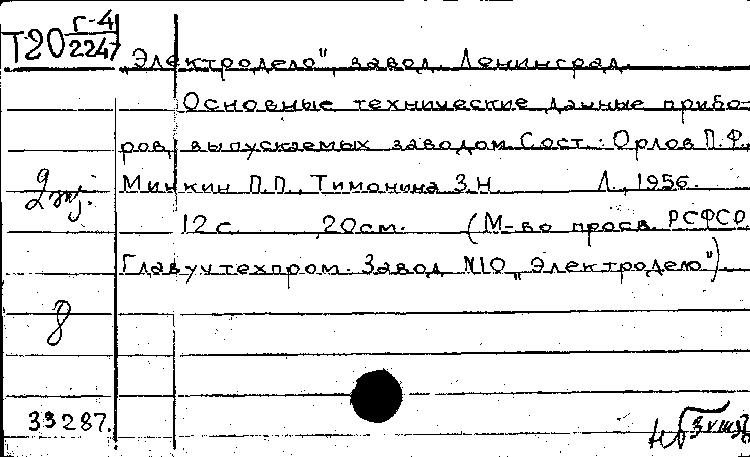 Т20 Г-4/2247
„Электродело", завод. Ленинград.
Основные технические данные прибо-
ров, выпускаемых заводом. Сост.: Орлов П.Ф.,
2 экз. Минкин П.П., Тимонина З.Н. Л., 1956.
12 с. 20 см. (М-во просв. РСФСР.
Главучтехпром. Завод N10 „Электродело").
8
33287.